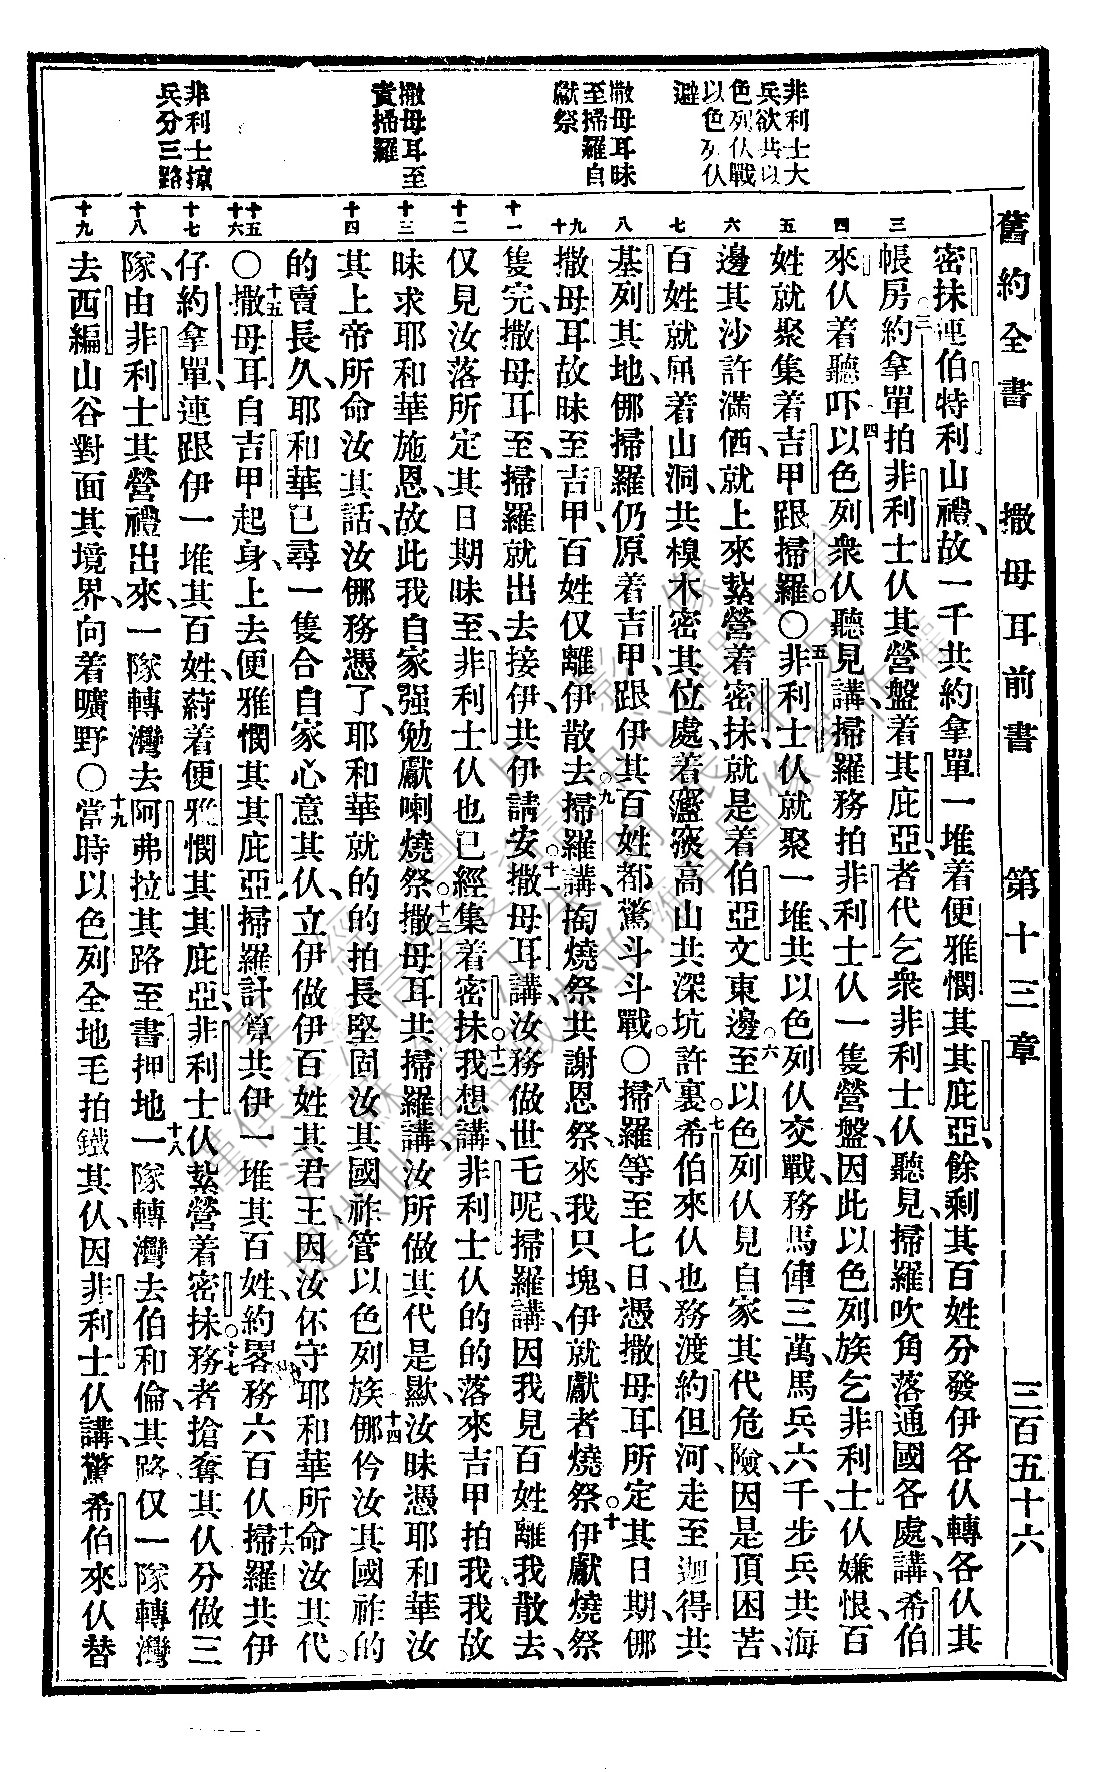 舊約全書 撒母耳前書 第十三章 三百五十六
非利士大
兵欲共以
色列仸戰
以色列仸
避
撒母耳昧
至掃羅自
獻祭
撒母耳至
責掃羅
非利士掠
兵分三路
三
四
五
六
七
八
九
十
十一
十二
十三
十四
十五
十六
十七
十八
十九
密抹連伯特利山禮、故一千共約拿單一堆着便雅憫其其庇亞、餘剩其百姓分發伊各仸轉各仸其
帳房○三約拿單拍非利士仸其營盤着其庇亞者代乞衆非利士仸聽見、掃羅吹角落通國各處講、希伯
來仸着聽吓四以色列衆仸聽見講掃羅務拍非利士仸一隻營盤、因此以色列族乞非利士仸嫌恨、百
姓就聚集着吉甲跟掃羅○五非利士仸就聚一堆、共以色列仸交戰、務馬俥三萬、馬兵六千、步兵共海
邊其沙許滿価、就上來紮營着密抹、就是着伯亞文東邊○六至以色列仸見自家其代危險、因是頂困苦、
百姓就屈着山洞、共模木密其位處、着瀊窽高山共深坑許裏○七希伯來仸也務渡約但河、走至迦得共
基列其地、㑚掃羅仍原着吉甲、跟伊其百姓都驚斗斗戰○八掃羅等至七日、憑撒母耳所定其日期、㑚
撒母耳故昧至吉甲、百姓仅離伊散去○九掃羅講、掏燒祭共謝恩祭、來我只塊、伊就獻者燒祭○十伊獻燒祭
隻完、撒母耳至、掃羅就出去接伊、共伊請安○十一撒母耳講、汝務做世乇呢、掃羅講、因我見百姓離我散去、
仅見汝落所定其日期昧至、非利士仸也已經集着密抹○十二我想講、非利士仸的的落來吉甲拍我、我故
昧求耶和華施恩、故此我自家强勉獻喇燒祭○十三撒母耳共掃羅講、汝所做其代是歞、汝昧憑耶和華汝
其上帝所命汝其話、汝㑚務憑了、耶和華就的的拍長堅固汝其國祚管以色列族十四㑚伶汝其國祚的
的賣長久、耶和華已尋一隻合自家心意其仸、立伊做伊百姓其君王、因汝伓守耶和華所命汝其代
○十五撒母耳自吉甲起身、上去便雅憫其其庇亞、掃羅計算共伊一堆其百姓、約畧務六百仸十六掃羅共伊
仔約拿單、連跟伊一堆其百姓、蔚着便雅憫其其庇亞、非利士仸紮營着密抹○十七務者搶奪其仸分做三
隊、由非利士其營禮出來、一隊轉灣去阿弗拉其路至書押地十八一隊轉灣去伯和倫其路、仅一隊轉灣
去西編山谷對面其境界、向着曠野○十九當時以色列全地毛拍鐵其仸、因非利士仸講、驚希伯來仸替